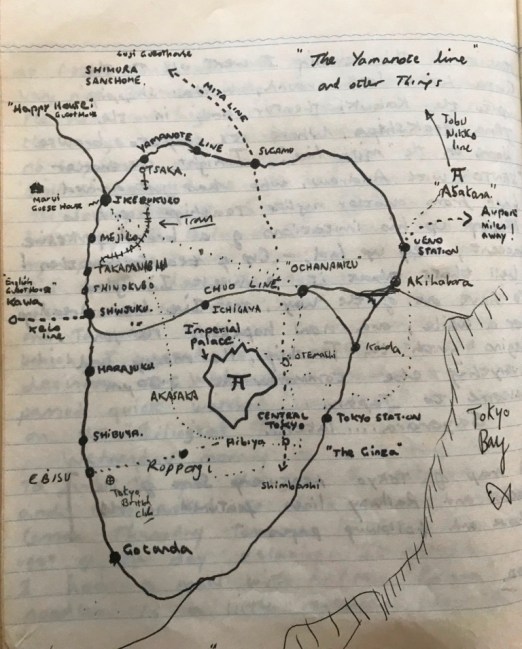 Fuji Guesthouse
SHIMURA
SANCHOME.
MITA LINE
"The Yamanote line"
and other Things
"Happy House i
Guesthouse
YAMANOTE LINE
OTSAKA.
SUGAMO
Tobu
Nikko
line
"Asakasa"
Marui
Guest House
IKEBUKURO
← Tram
Airport
miles
away!
MEJIKO
UENO
STATION
TAKADANBABA
"English
Guesthouse"
Kawa
SHINOKUBO
CHUO LINE
"OCHANAMIZU"
AKihabara
SHINJUKU.
ICHIGAYA
KEIO
line
Imperial
Palace
OTEMACHI
Kanda
HARAJUKU
AKASAKA
CENTRAL
TOKYO
TOKYO STATION
Tokyo
Bay
SHIBUYA.
Hibiya
"The Ginza"
EBISU
Roppongi
Shimbashi
Tokyo
British
Club
Gotanda